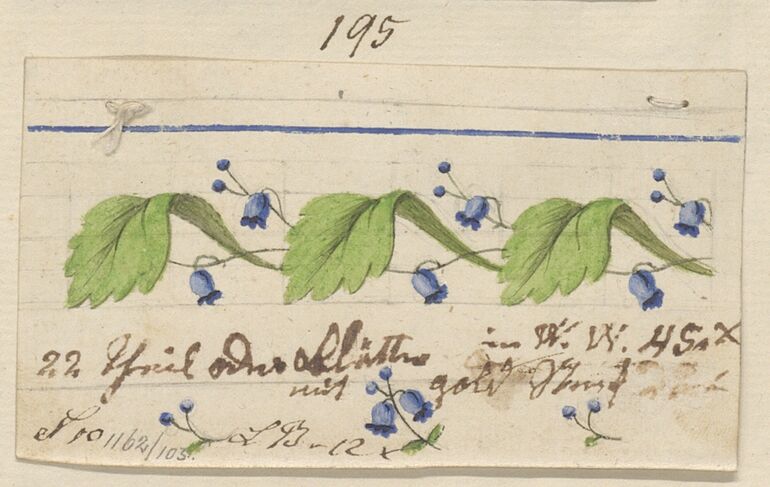 195
22 Theil oder Blätter in W. W. 45 x
mit gold
S 10 1162/103. L B 12 x